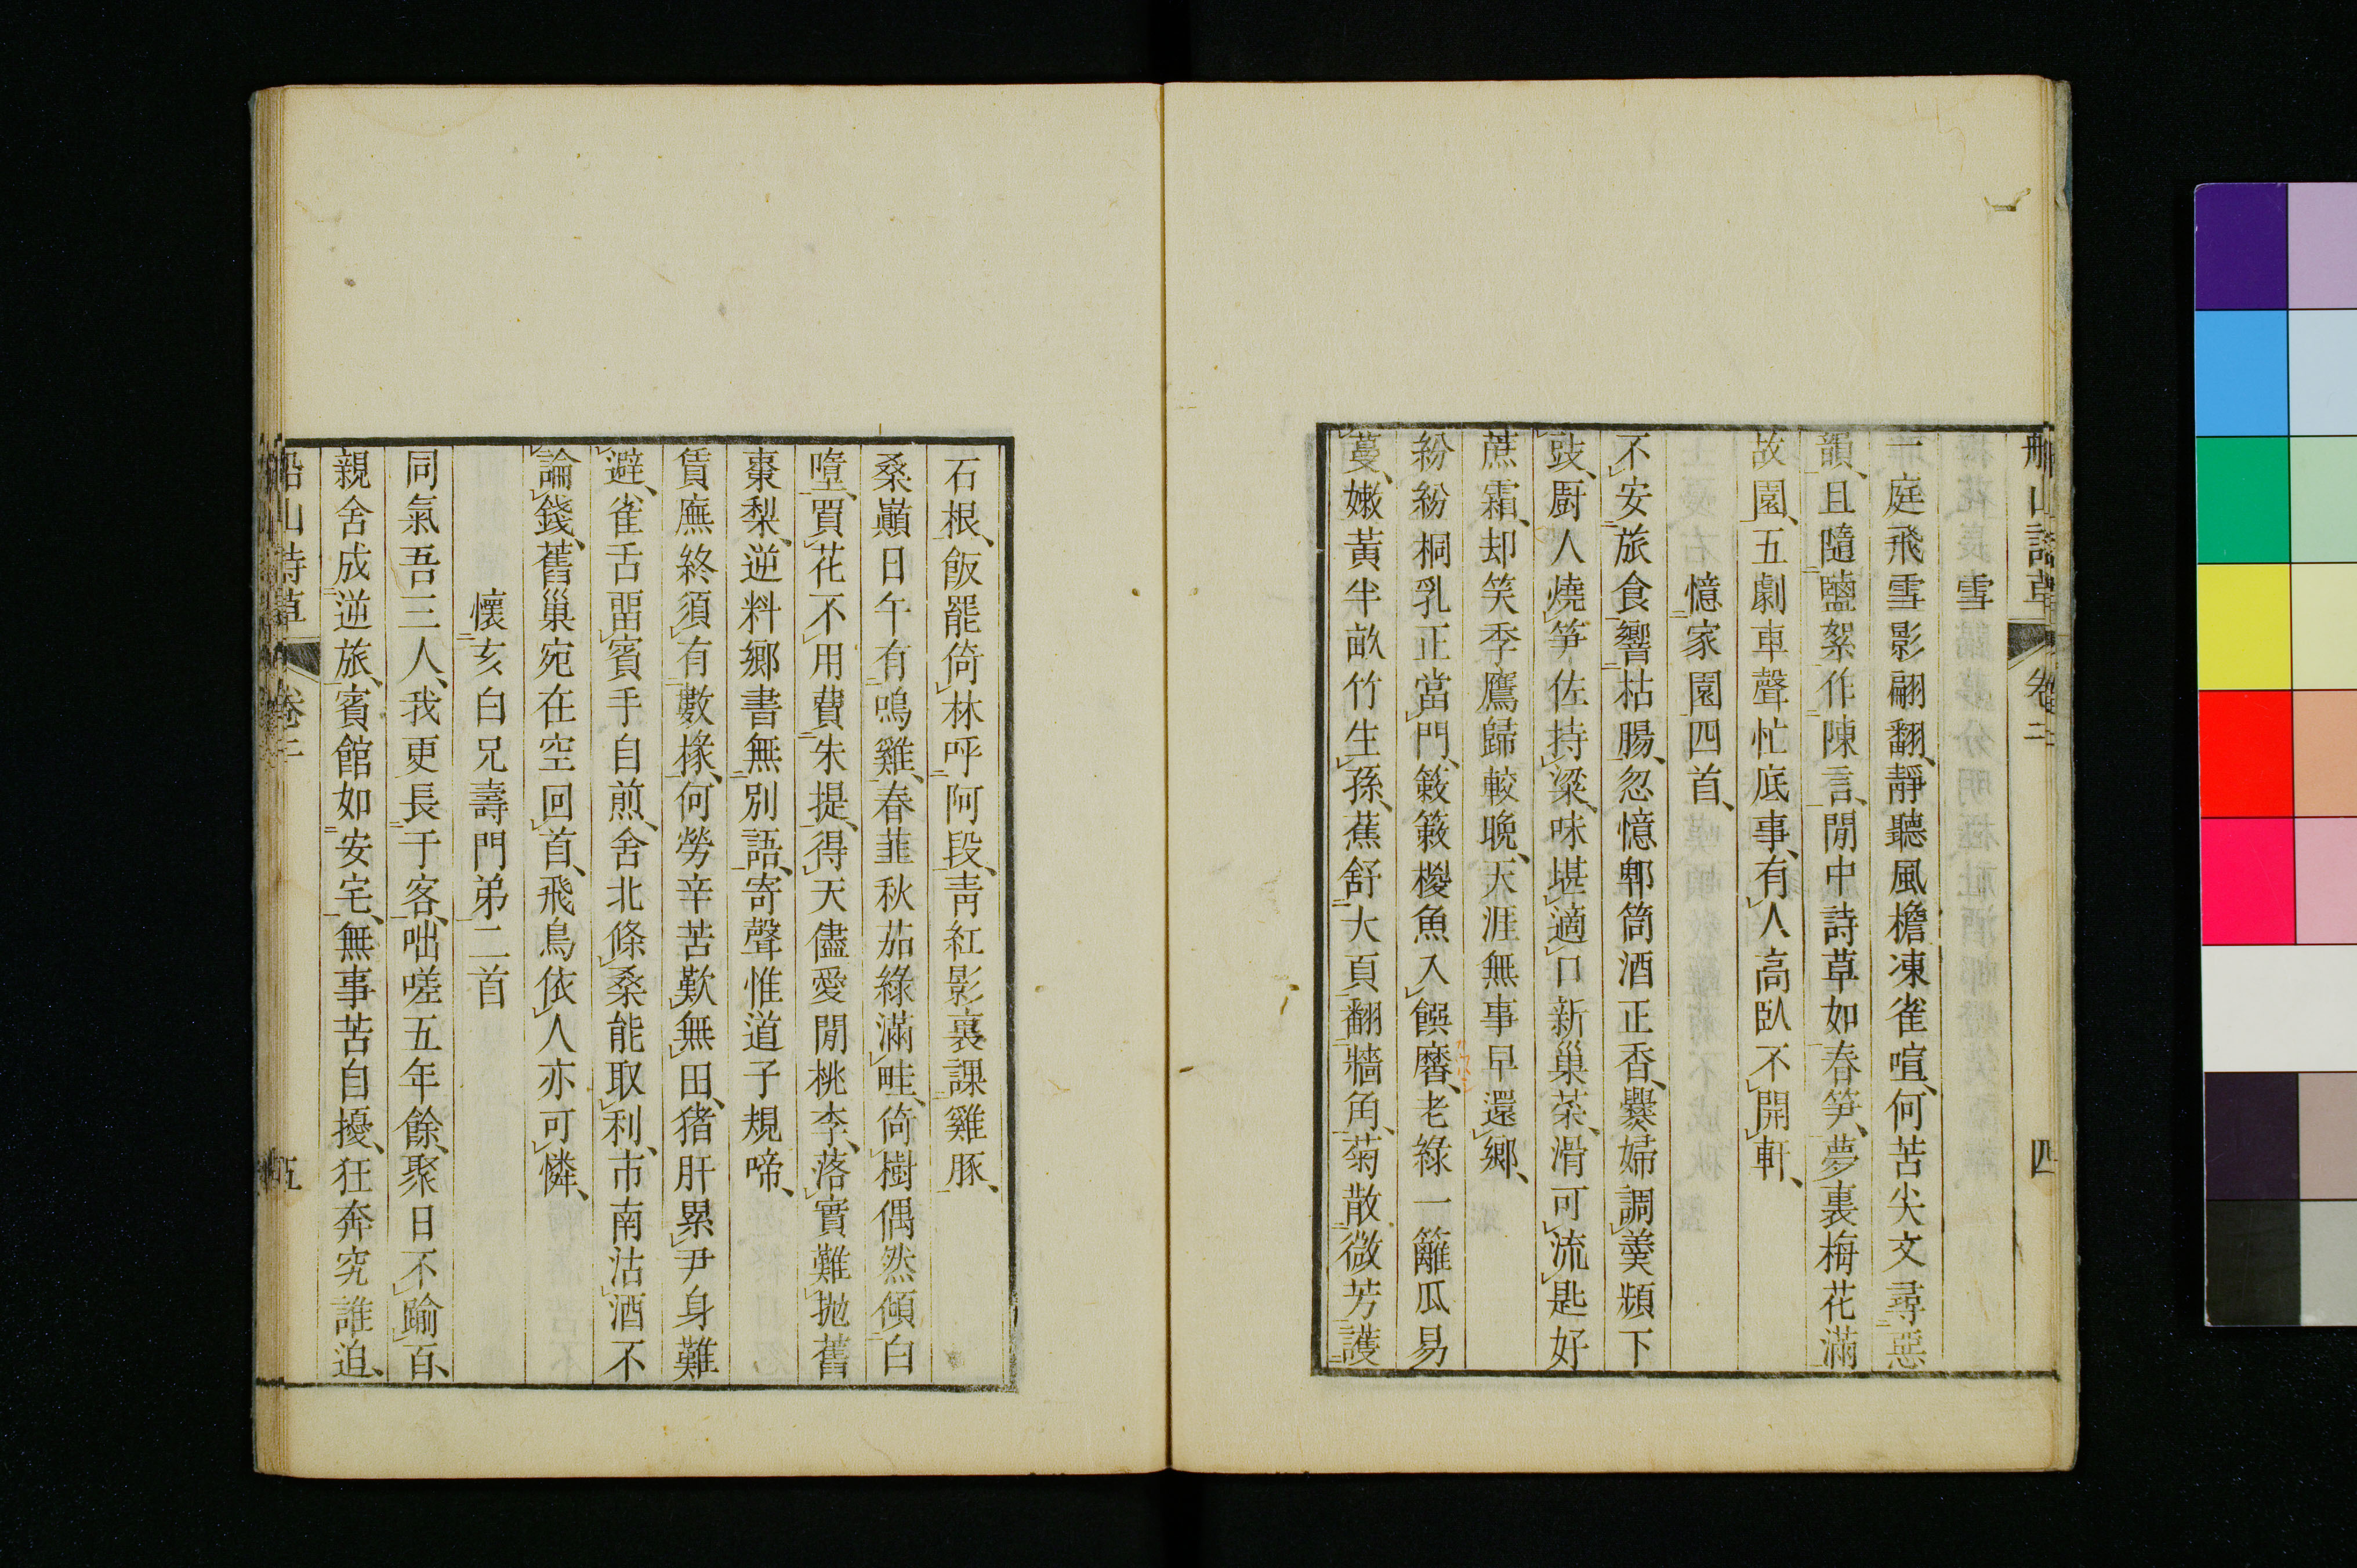 船山詩草 卷二 四
雪
一庭飛雪影翩翻靜聽風檐凍雀喧何苦尖文尋惡
韻且隨鹽絮作陳言閒中詩草如春笋夢裏梅花滿
故園五劇車聲忙底事有人高臥不開軒
憶家園四首
不安旅食響枯腸忽憶郫筒酒正香爨婦調羹頻下
豉厨人燒笋佐持粱味堪適口新巢菜滑可流匙好
蔗霜却笑季鷹歸較晚天涯無事早還鄉
紛紛桐乳正當門簌簌椶魚入饌䴢老綠一籬瓜易
蔓嫩黃半畝竹生孫蕉舒大頁翻牆角菊散微芳護
石根飯罷倚林呼阿段靑紅影裏課雞豚
桑巔日午有鳴雞春韮秋茄綠滿畦倚樹偶然傾白
墮買花不用費朱提得天儘愛閒桃李落實難抛舊
棗梨逆料鄉書無別語寄聲惟道子規啼
賃廡終須有數椽何勞辛苦歎無田猪肝累尹身難
避雀舌畱賓手自煎舍北條桑能取利市南沽酒不
論錢舊巢宛在空回首飛鳥依人亦可憐
懷亥白兄壽門弟二首
同氣吾三人我更長于客咄嗟五年餘聚日不踰百
親舍成逆旅賓館如安宅無事苦自擾狂奔究誰迫
船山詩草 卷二 五